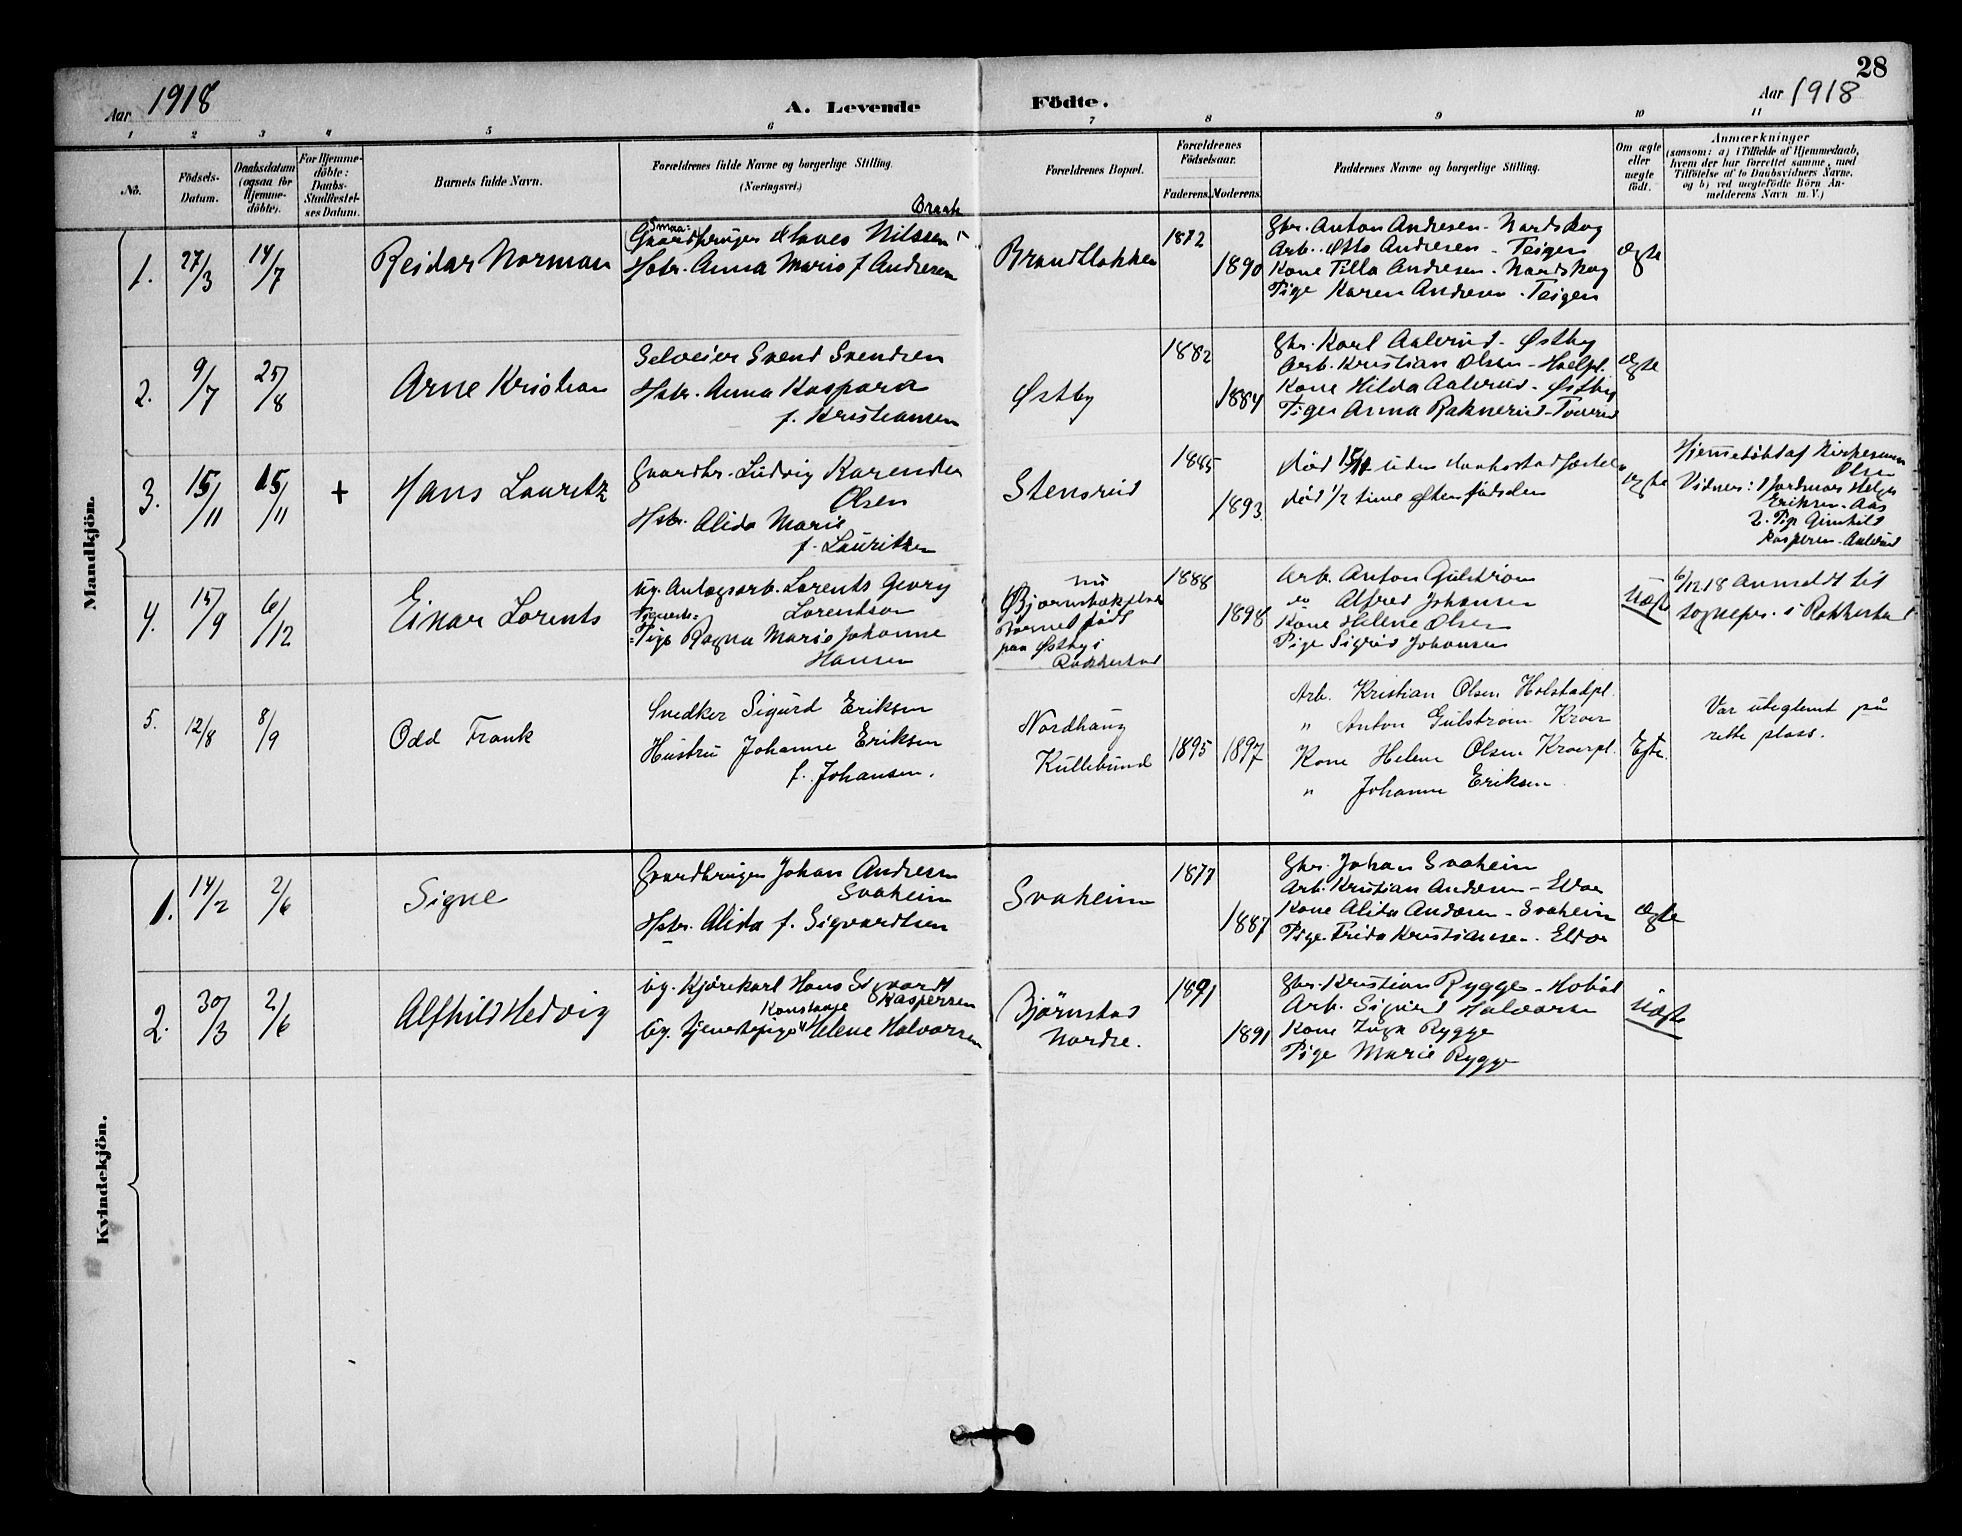 28
Aar 1918
A. Levende Födte.
Aar 1918
1 2 3 4 5 6 7 8 9 10 11
No.
Födsels-Datum.
Daabsdatum (ogsaa for Hjemme-döbte).
For Hjemme-döbte: Daabs-Stadfæstel-ses Datum.
Barnets fulde Navn.
Forældrenes fulde Navne og borgerlige Stilling.
(Næringsvei.)
Forældrenes Bopæl.
Forældrenes Födselsaar.
Faderens. Moderens.
Faddernes Navne og borgerlige Stilling.
Om ægte eller uægte födt.
Anmærkninger
(saasom: a) i Tilfælde af Hjemmedaab,
hvem der har forrettet samme, med
Tilföielse af to Daabsvidners Navne,
og b) ved uægtefödte Börn An-
melderens Navn m. V.)
Mandkjön.
1. 27/3 14/7
Reidar Norman
Braak
Smaa-
Gaardbruger Hans Nilssen
Hstr. Anna Marie f Andresen
Brandtlokken
1872
1890
Gbr. Anton Andresen - Nordskog
Arb. Otto Andresen - Teigen
Kone Tilla Andresen - Nordskog
Pige Karen Andresen - Teigen
ægte
2. 9/7 25/8
Arne Kristian
Selveier Svend Svendsen
Hstr. Anna Kaspara
f. Kristiansen
Østby
1882
1884
Gbr. Karl Aalerud - Østby
Arb. Kristian Olsen - Holpl.
Kone Hilda Aalerud - Østby
Pige Anna Raknerud - Tverud
ægte
3. 15/11 15/11 +
Hans Lauritz
Gaardbr. Ludvig Karenius
Olsen
Hstr. Alida Marie
f. Lauritzen
Stensrud
1885
1893
död 15/11 uden daabsstadfæstelse
död 1/2 time efter födselen
ægte
Hjemmedöbt af Kirkesanger
Olsen
Vidner: 1 Jordmor Helga
Eriksen - Aas
2. Pige Gunhild
Kaspersen - Aalerud
4. 15/9 6/12
Einar Lorents
Ug. Anlægsarb. Lorents Georg
Lorentson
Pige Ragna Marie Johanne
Hansen
nu
Bjørnstadplads
Barnet födt
paa Østby i
Rakkestad
1888
1898
Arb. Anton Gulstrøm
do Alfred Johansen
Kone Helene Olsen
Pige Sigrid Johansen
Uægte
6/12 18 anmeldt til
sognepr. i Rakkestad
5. 12/8 8/9
Odd Frank
Snedker Sigurd Eriksen
Hustru Johanne Eriksen
f. Johansen.
Nordhaug
Kullebund
1895 1897
Arb. Kristian Olsen Holstadpl.
" Anton Gulstrøm Kroer
Kone Helene Olsen Kroerpl.
" Johanne Eriksen
Egte.
Var uteglemt på
rette plass.
Kvindekjön.
1. 14/2 2/6
Signe
Gaardbruger Johan Andresen
Svaheim
Hstr. Alida f. Sigvardtsen
Svaheim
1877
1887
Gbr. Johan Svaheim
Arb. Kristian Andresen - Eldor
Kone Alida Andresen - Svaheim
Pige Frida Kristiansen - Eldor
ægte
2. 30/3 2/6
Alfhild Hedvig
Ug. Kjørekarl Hans Sigvardt
Kaspersen
Konstanse
Ug. tjenestepige Helene Halvorsen
Bjørnstad
Nordre.
1891
1891
Gbr. Kristian Rygge - Hobøl
Arb. Sigurd Halvorsen
Kone Inga Rygge
Pige Marie Rygge
Uægte